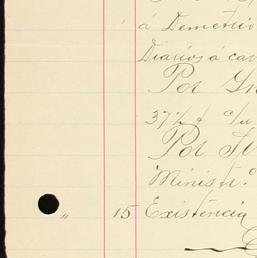 á Demetrio
Diarios á ca
Por G
37½ ¢ c/u
Por
Ministr.º
" 15 Existencia